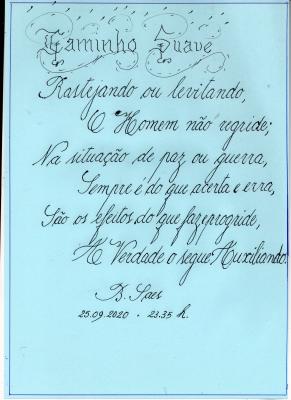 Caminho Suave
Rastejando ou levitando,
O Homem não regride;
Na situação de paz ou guerra,
Sempre é do que acerta e erra,
São os efeitos do que faz progride,
A Verdade o segue Auxiliando.
D. Saes
25.09.2020 - 23.35 h.